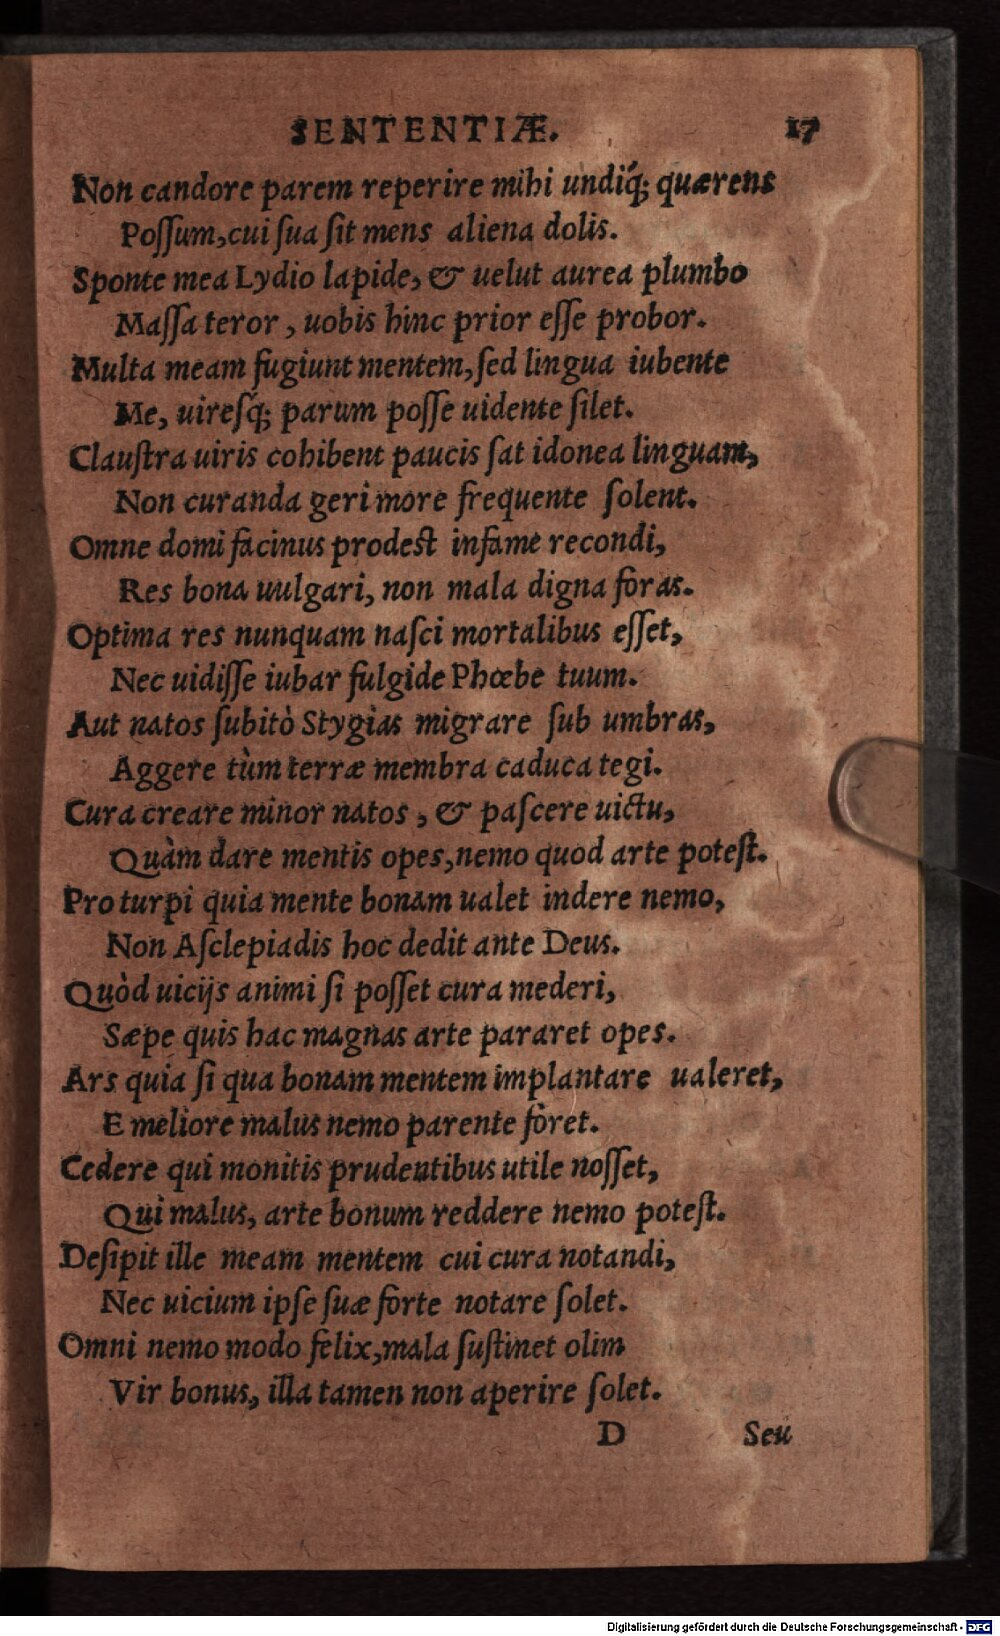 SENTENTIÆ. 17
Non candore parem reperire mihi undiq́; quærens
Poſſum, cui ſua ſit mens aliena dolis.
Sponte mea Lydio lapide, & uelut aurea plumbo
Maſſa teror, uobis hinc prior eſſe probor.
Multa meam fugiunt mentem, ſed lingua iubente
Me, uireſq́; parum poſſe uidente ſilet.
Clauſtra uiris cohibent paucis ſat idonea linguam,
Non curanda geri more frequente ſolent.
Omne domi facinus prodeſt infame recondi,
Res bona uulgari, non mala digna foras.
Optima res nunquam naſci mortalibus eſſet,
Nec uidiſſe iubar fulgide Phœbe tuum.
Aut natos ſubitò Stygias migrare ſub umbras,
Aggere tùm terræ membra caduca tegi.
Cura creare minor natos, & paſcere uictu,
Quàm dare mentis opes, nemo quod arte poteſt.
Pro turpi quia mente bonam ualet indere nemo,
Non Aſclepiadis hoc dedit ante Deus.
Quòd uicijs animi ſi poſſet cura mederi,
Sæpe quis hac magnas arte pararet opes.
Ars quia ſi qua bonam mentem implantare ualeret,
E meliore malus nemo parente foret.
Cedere qui monitis prudentibus utile noſſet,
Qui malus, arte bonum reddere nemo poteſt.
Deſipit ille meam mentem cui cura notandi,
Nec uicium ipſe ſuæ forte notare ſolet.
Omni nemo modo felix, mala ſuſtinet olim
Vir bonus, illa tamen non aperire ſolet.
D Seu
Digitalisierung gefördert durch die Deutsche Forschungsgemeinschaft - DFG